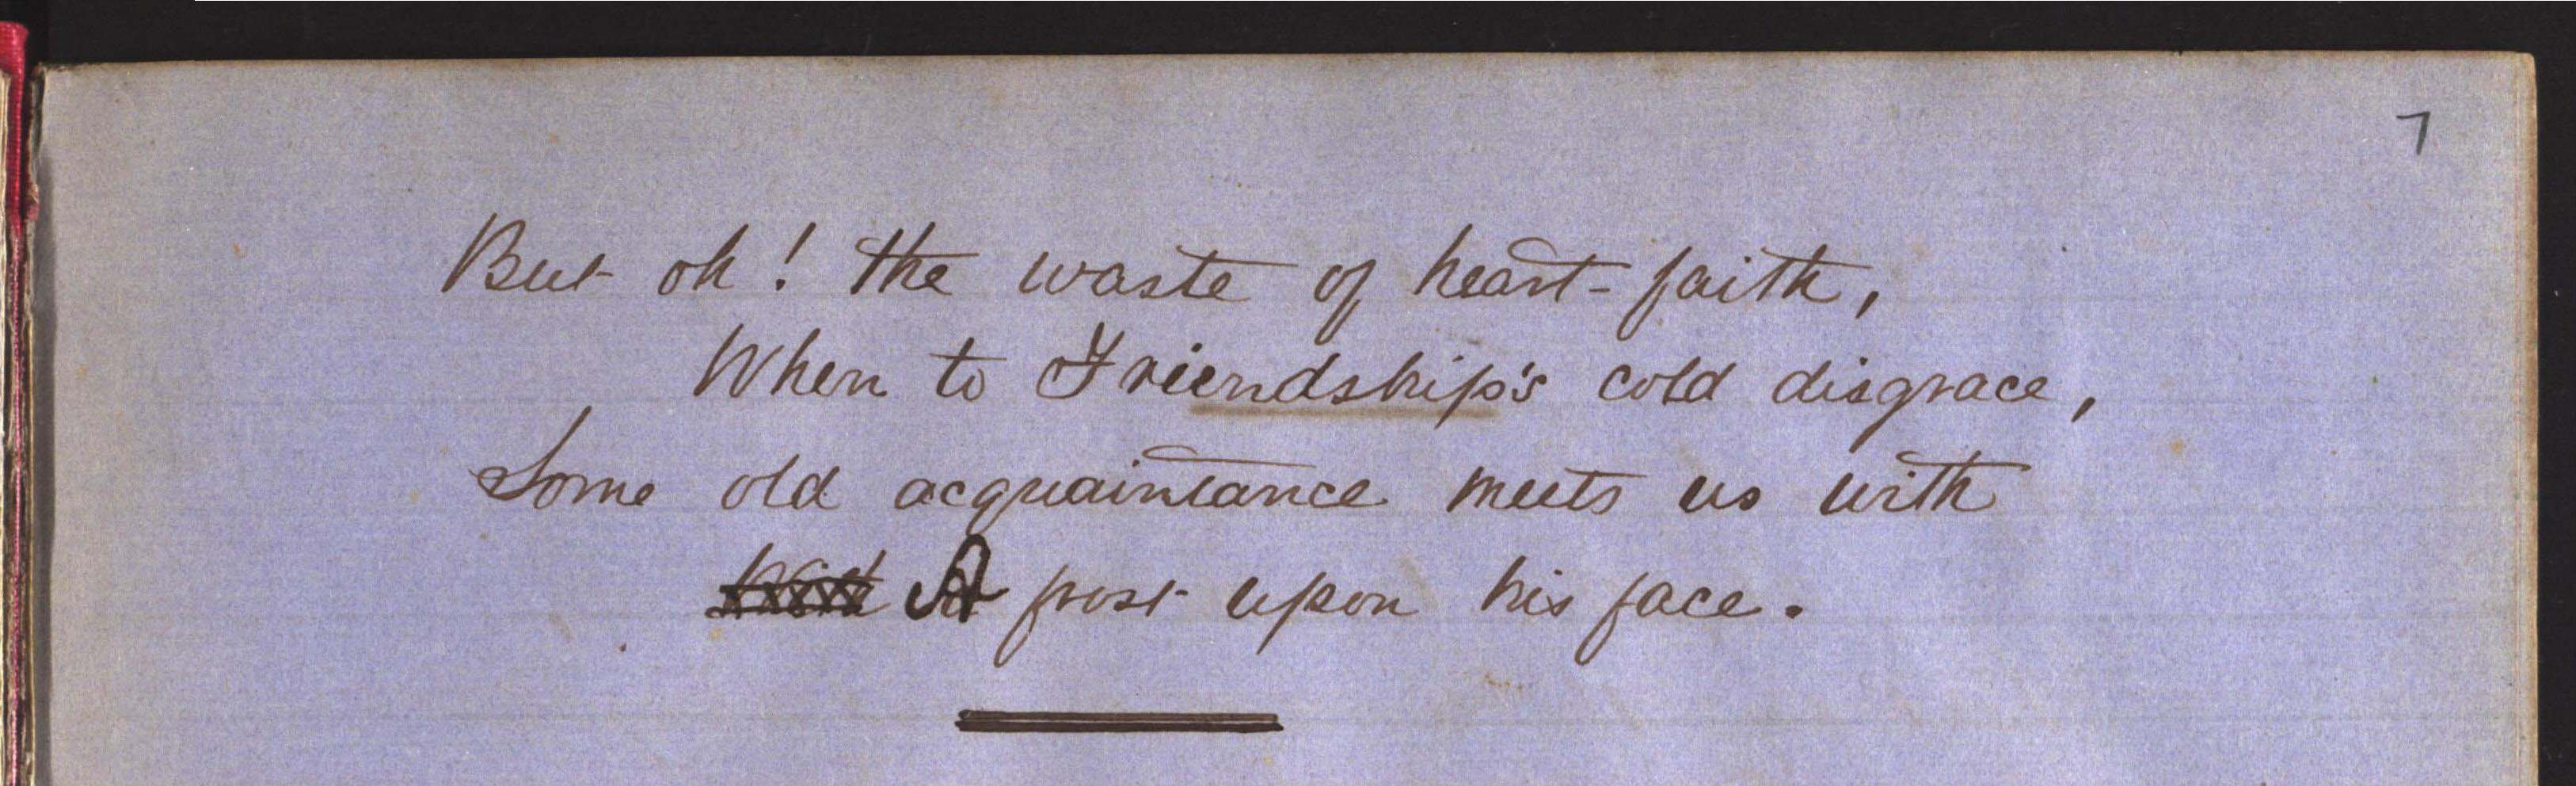 7
But oh! the waste of heart-faith,
When to Friendship's cold disgrace,
Some old acquaintance meets us with
A frost upon his face.